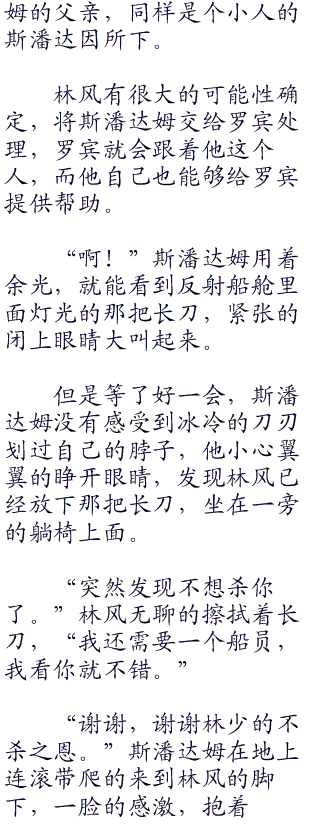 姆的父亲，同样是个小人的
斯潘达因所下。
林风有很大的可能性确
定，将斯潘达姆交给罗宾处
理，罗宾就会跟着他这个
人，而他自己也能够给罗宾
提供帮助。
“啊！”斯潘达姆用着
余光，就能看到反射船舱里
面灯光的那把长刀，紧张的
闭上眼睛大叫起来。
但是等了好一会，斯潘
达姆没有感受到冰冷的刀刃
划过自己的脖子，他小心翼
翼的睁开眼睛，发现林风已
经放下那把长刀，坐在一旁
的躺椅上面。
“突然发现不想杀你
了。”林风无聊的擦拭着长
刀，“我还需要一个船员，
我看你就不错。”
“谢谢，谢谢林少的不
杀之恩。”斯潘达姆在地上
连滚带爬的来到林风的脚
下，一脸的感激，抱着